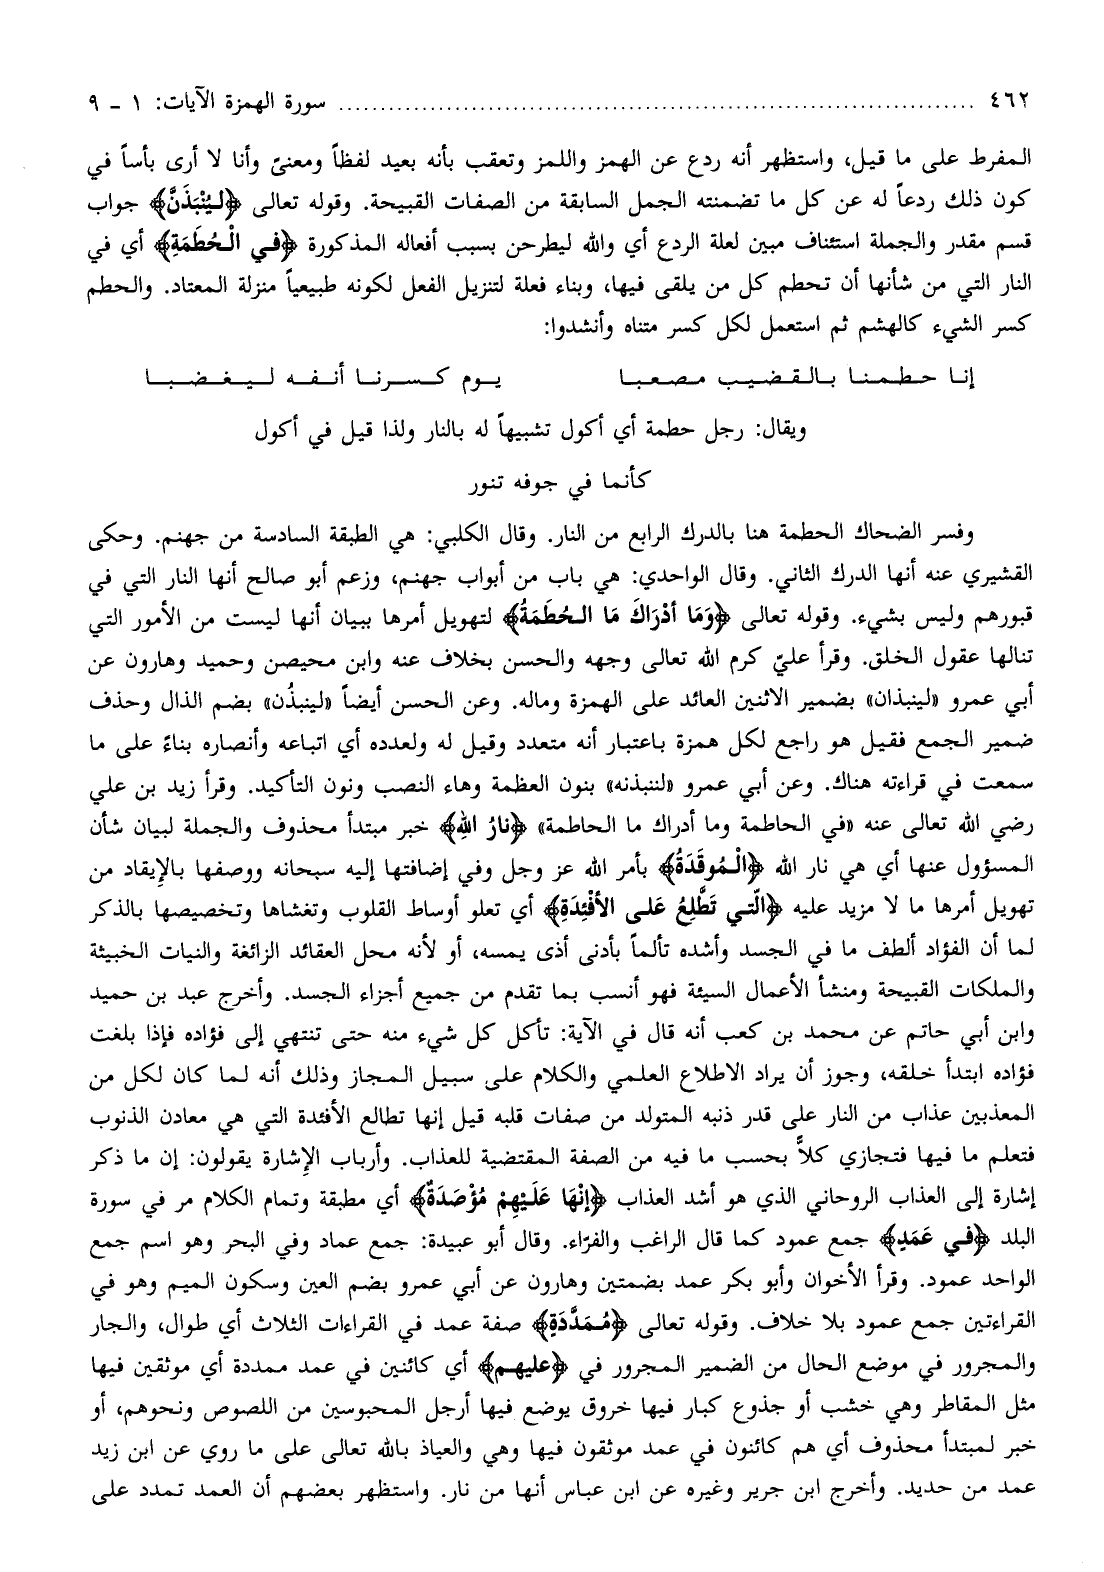 ٤٦٢ ........................................................................ سورة الهمزة الآيات: ١ - ٩
المفرط على ما قيل، واستظهر أنه ردع عن الهمز واللمز وتعقب بأنه بعيد لفظاً ومعنىً وأنا لا أرى بأساً في
كون ذلك ردعاً له عن كل ما تضمنته الجمل السابقة من الصفات القبيحة. وقوله تعالى ﴿لَيُنْبَذَنَّ﴾ جواب
قسم مقدر والجملة استئناف مبين لعلة الردع أي والله ليطرحن بسبب أفعاله المذكورة ﴿فِي الْحُطَمَةِ﴾ أي في
النار التي من شأنها أن تحطم كل من يلقى فيها، وبناء فعلة لتنزيل الفعل لكونه طبيعياً منزلة المعتاد. والحطم
كسر الشيء كالهشم ثم استعمل لكل كسر متناه وأنشدوا:
إنا حطمنا بالقضيب مصعبا يوم كسرنا أنفه ليغضبا
ويقال: رجل حطمة أي أكول تشبيهاً له بالنار ولذا قيل في أكول
كأنما في جوفه تنور
وفسر الضحاك الحطمة هنا بالدرك الرابع من النار. وقال الكلبي: هي الطبقة السادسة من جهنم. وحكى
القشيري عنه أنها الدرك الثاني. وقال الواحدي: هي باب من أبواب جهنم، وزعم أبو صالح أنها النار التي في
قبورهم وليس بشيء. وقوله تعالى ﴿وَمَا أدْرَاكَ مَا الحُطَمَةُ﴾ لتهويل أمرها ببيان أنها ليست من الأمور التي
تنالها عقول الخلق. وقرأ عليّ كرم الله تعالى وجهه والحسن بخلاف عنه وابن محيصن وحميد وهارون عن
أبي عمرو «لينبذان» بضمير الاثنين العائد على الهمزة وماله. وعن الحسن أيضاً «لينبذُن» بضم الذال وحذف
ضمير الجمع فقيل هو راجع لكل همزة باعتبار أنه متعدد وقيل له ولعدده أي اتباعه وأنصاره بناءً على ما
سمعت في قراءته هناك. وعن أبي عمرو «لننبذنه» بنون العظمة وهاء النصب ونون التأكيد. وقرأ زيد بن علي
رضي الله تعالى عنه «في الحاطمة وما أدراك ما الحاطمة» ﴿نارُ اللهِ﴾ خبر مبتدأ محذوف والجملة لبيان شأن
المسؤول عنها أي هي نار الله ﴿الْمُوقَدَةُ﴾ بأمر الله عز وجل وفي إضافتها إليه سبحانه ووصفها بالإيقاد من
تهويل أمرها ما لا مزيد عليه ﴿الّتي تَطَّلِعُ عَلَى الأفْئِدَةِ﴾ أي تعلو أوساط القلوب وتغشاها وتخصيصها بالذكر
لما أن الفؤاد ألطف ما في الجسد وأشده تألماً بأدنى أذى يمسه، أو لأنه محل العقائد الزائغة والنيات الخبيثة
والملكات القبيحة ومنشأ الأعمال السيئة فهو أنسب بما تقدم من جميع أجزاء الجسد. وأخرج عبد بن حميد
وابن أبي حاتم عن محمد بن كعب أنه قال في الآية: تأكل كل شيء منه حتى تنتهي إلى فؤاده فإذا بلغت
فؤاده ابتدأ خلقه، وجوز أن يراد الاطلاع العلمي والكلام على سبيل المجاز وذلك أنه لما كان لكل من
المعذبين عذاب من النار على قدر ذنبه المتولد من صفات قلبه قيل إنها تطالع الأفئدة التي هي معادن الذنوب
فتعلم ما فيها فتجازي كلاًّ بحسب ما فيه من الصفة المقتضية للعذاب. وأرباب الإشارة يقولون: إن ما ذكر
إشارة إلى العذاب الروحاني الذي هو أشد العذاب ﴿إنّها عَلَيْهِمْ مُؤْصَدَةٌ﴾ أي مطبقة وتمام الكلام مر في سورة
البلد ﴿في عَمَدٍ﴾ جمع عمود كما قال الراغب والفرّاء. وقال أبو عبيدة: جمع عماد وفي البحر وهو اسم جمع
الواحد عمود. وقرأ الأخوان وأبو بكر عمد بضمتين وهارون عن أبي عمرو بضم العين وسكون الميم وهو في
القراءتين جمع عمود بلا خلاف. وقوله تعالى ﴿مُمَدَّدَةِ﴾ صفة عمد في القراءات الثلاث أي طوال، والجار
والمجرور في موضع الحال من الضمير المجرور في ﴿عليهم﴾ أي كائنين في عمد ممددة أي موثقين فيها
مثل المقاطر وهي خشب أو جذوع كبار فيها خروق يوضع فيها أرجل المحبوسين من اللصوص ونحوهم، أو
خبر لمبتدأ محذوف أي هم كائنون في عمد موثقون فيها وهي والعياذ بالله تعالى على ما روي عن ابن زيد
عمد من حديد. وأخرج ابن جرير وغيره عن ابن عباس أنها من نار. واستظهر بعضهم أن العمد تمدد على